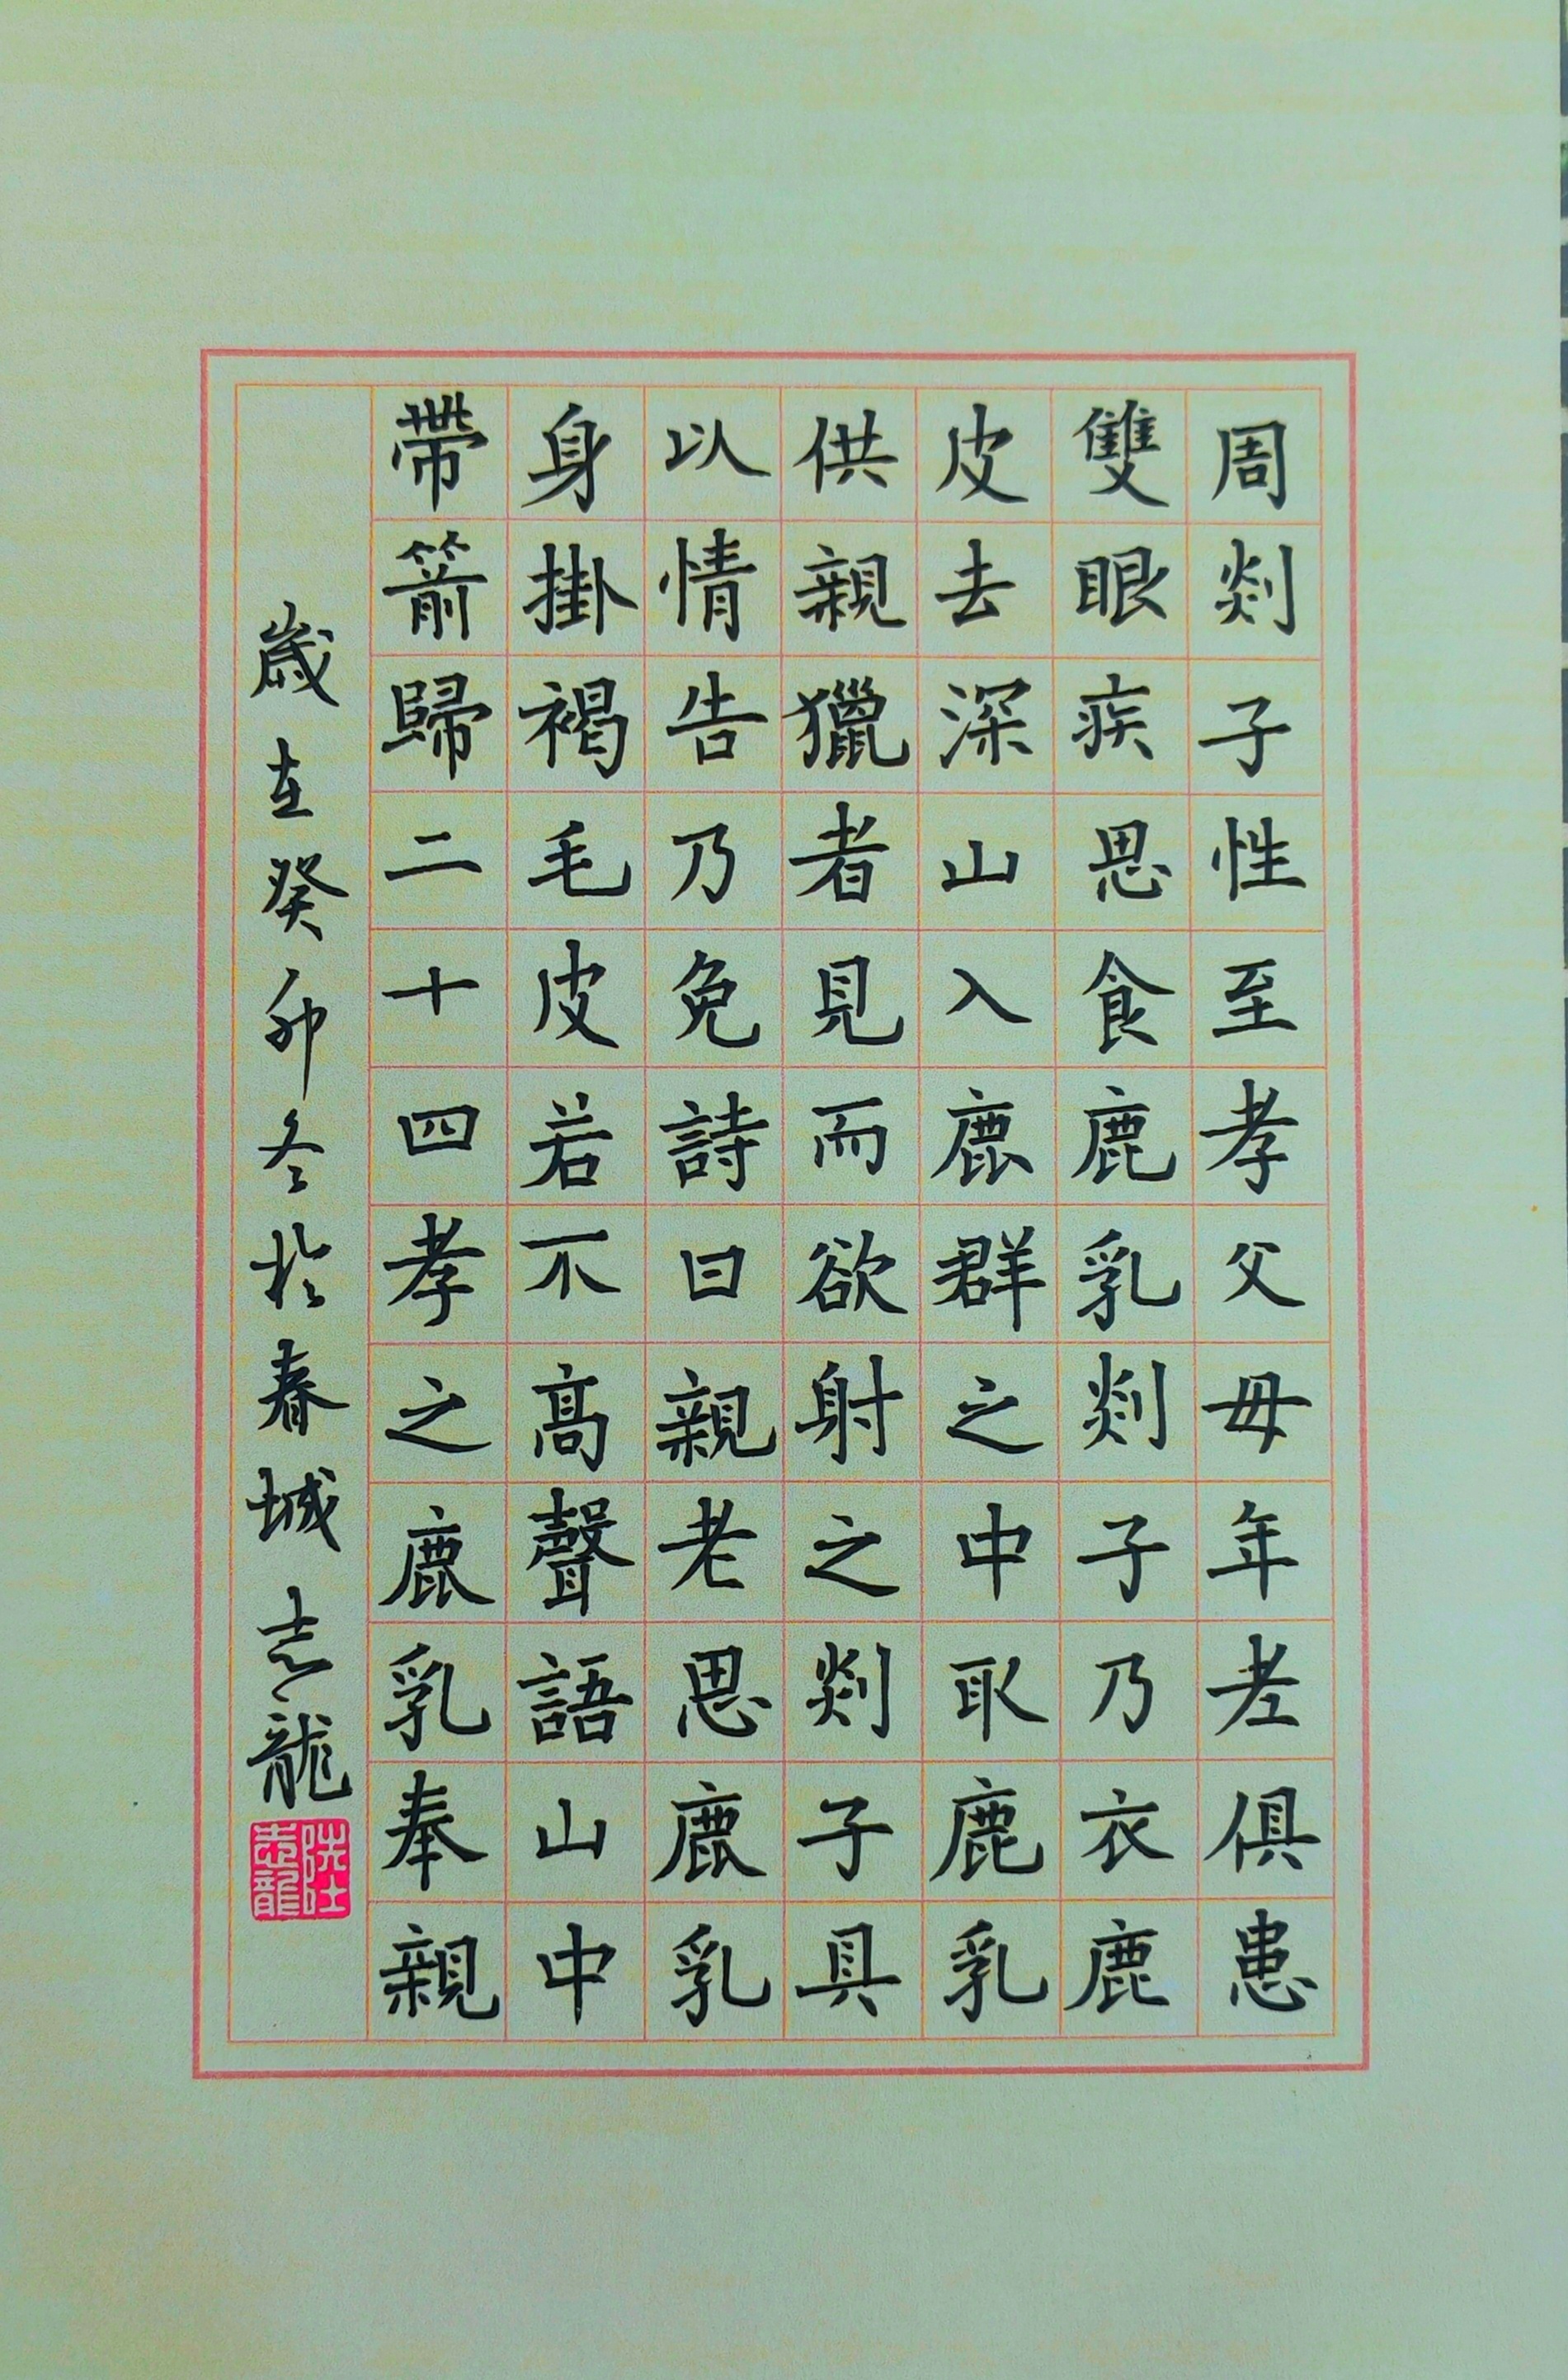 周剡子性至孝父母年老俱患
雙眼疾思食鹿乳剡子乃衣鹿
皮去深山入鹿群之中取鹿乳
供親獵者見而欲射之剡子具
以情告乃免詩曰親老思鹿乳
身掛褐毛皮若不高聲語山中
帶箭歸二十四孝之鹿乳奉親
歲在癸卯冬於春城志龍